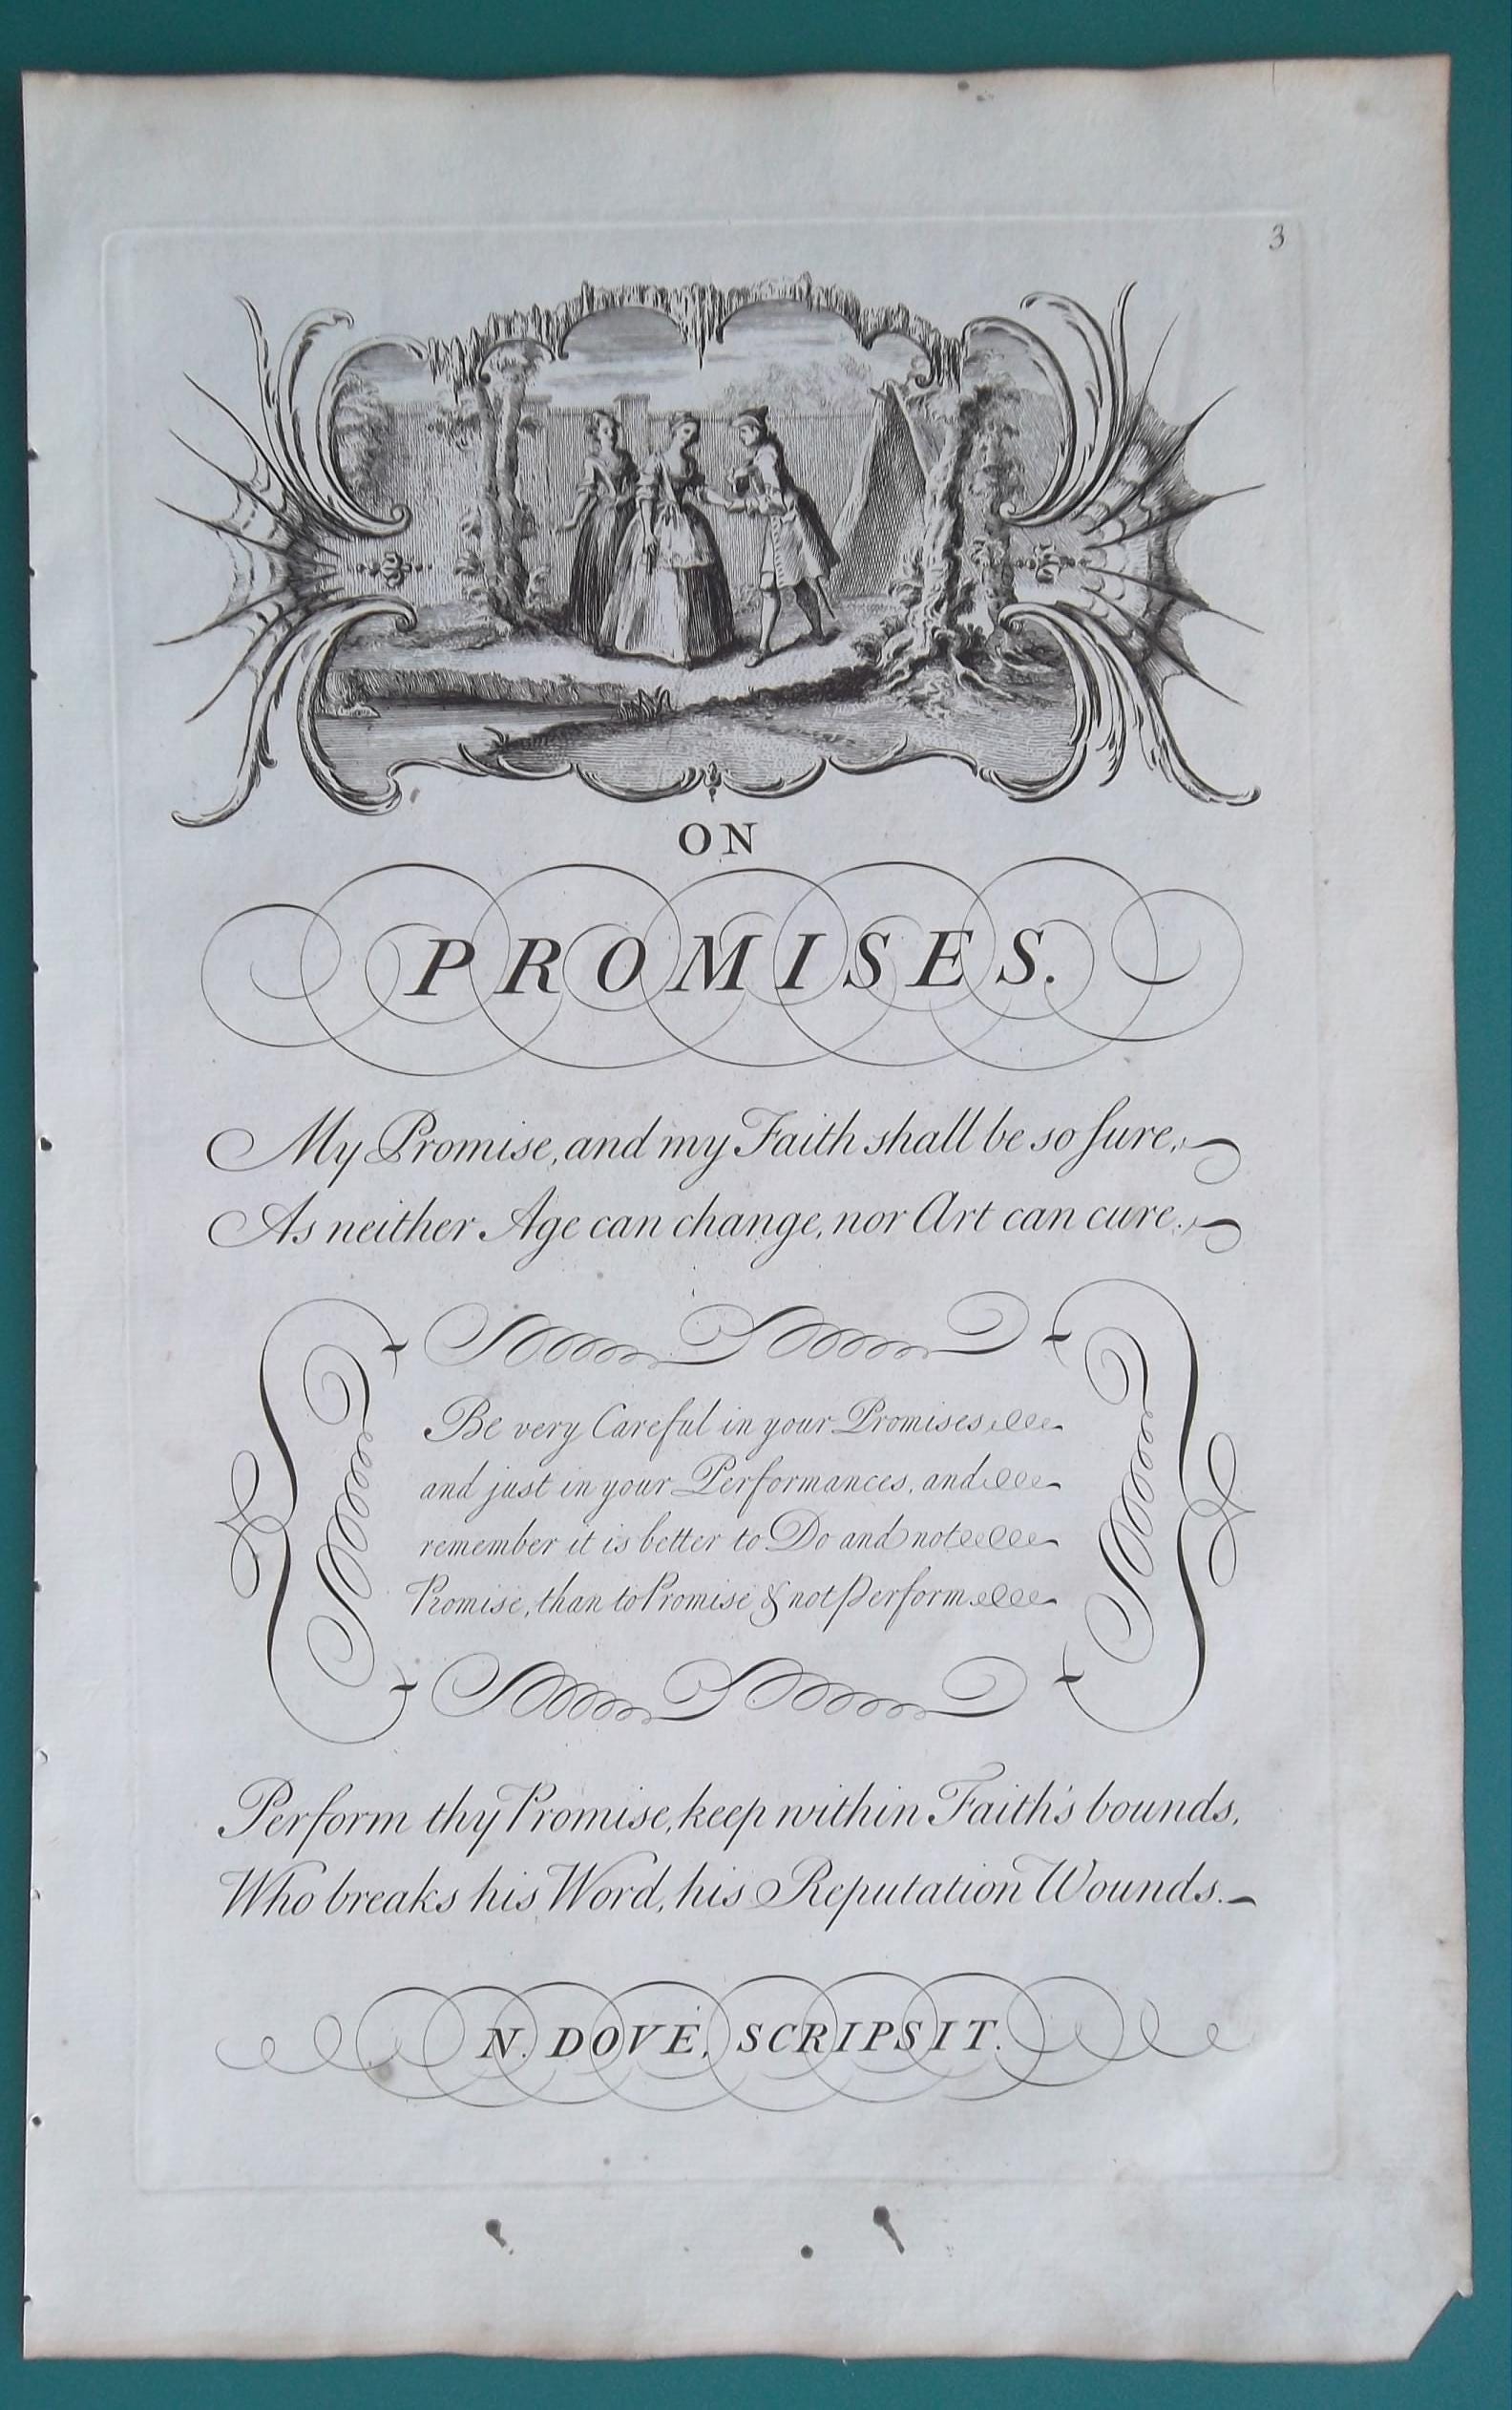 3
ON
PROMISES.
My Promise, and my Faith shall be so ſure,
As neither Age can change, nor Art can cure.
Be very Careful in your Promises
and just in your Performances, and
remember it is better to Do and not
Promise, than to Promise & not Perform
Perform thy Promise, keep within Faith's bounds,
Who breaks his Word, his Reputation Wounds.
N. DOVE, SCRIPSIT.